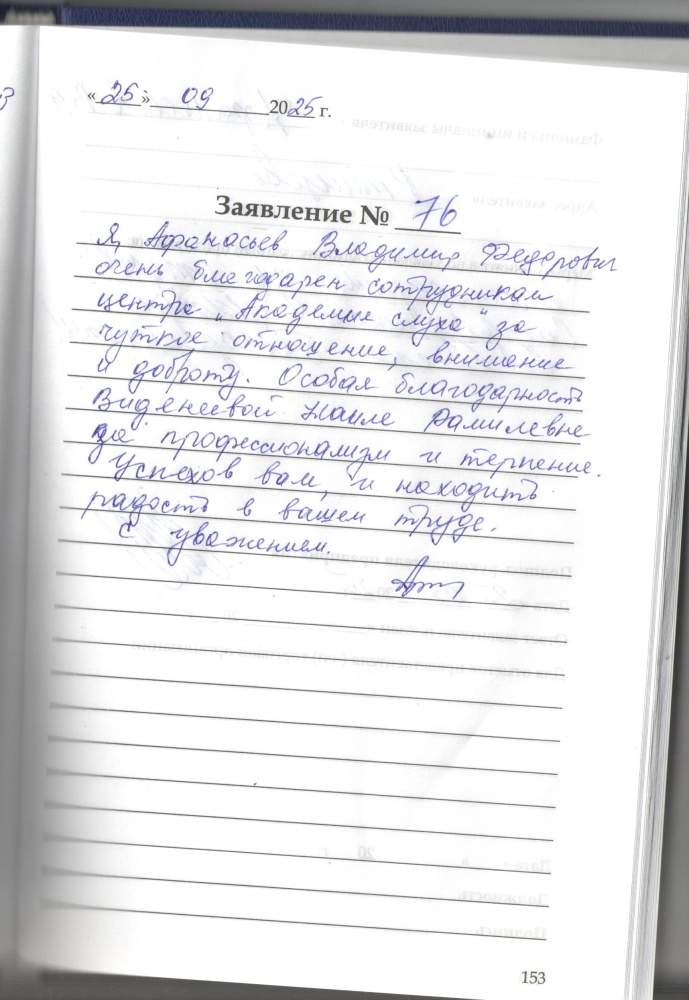 «25» 09 2025 г.
Заявление № 76
Я, Афанасьев Владимир Федорович
очень благодарен сотрудникам
центра „Академия слуха“ за
чуткое отношение, внимание
и доброту. Особая благодарность
Виденеевой Наиле Рамилевне
за профессионализм и терпение.
Успехов вам, и находить
радость в вашем труде.
С уважением.
153